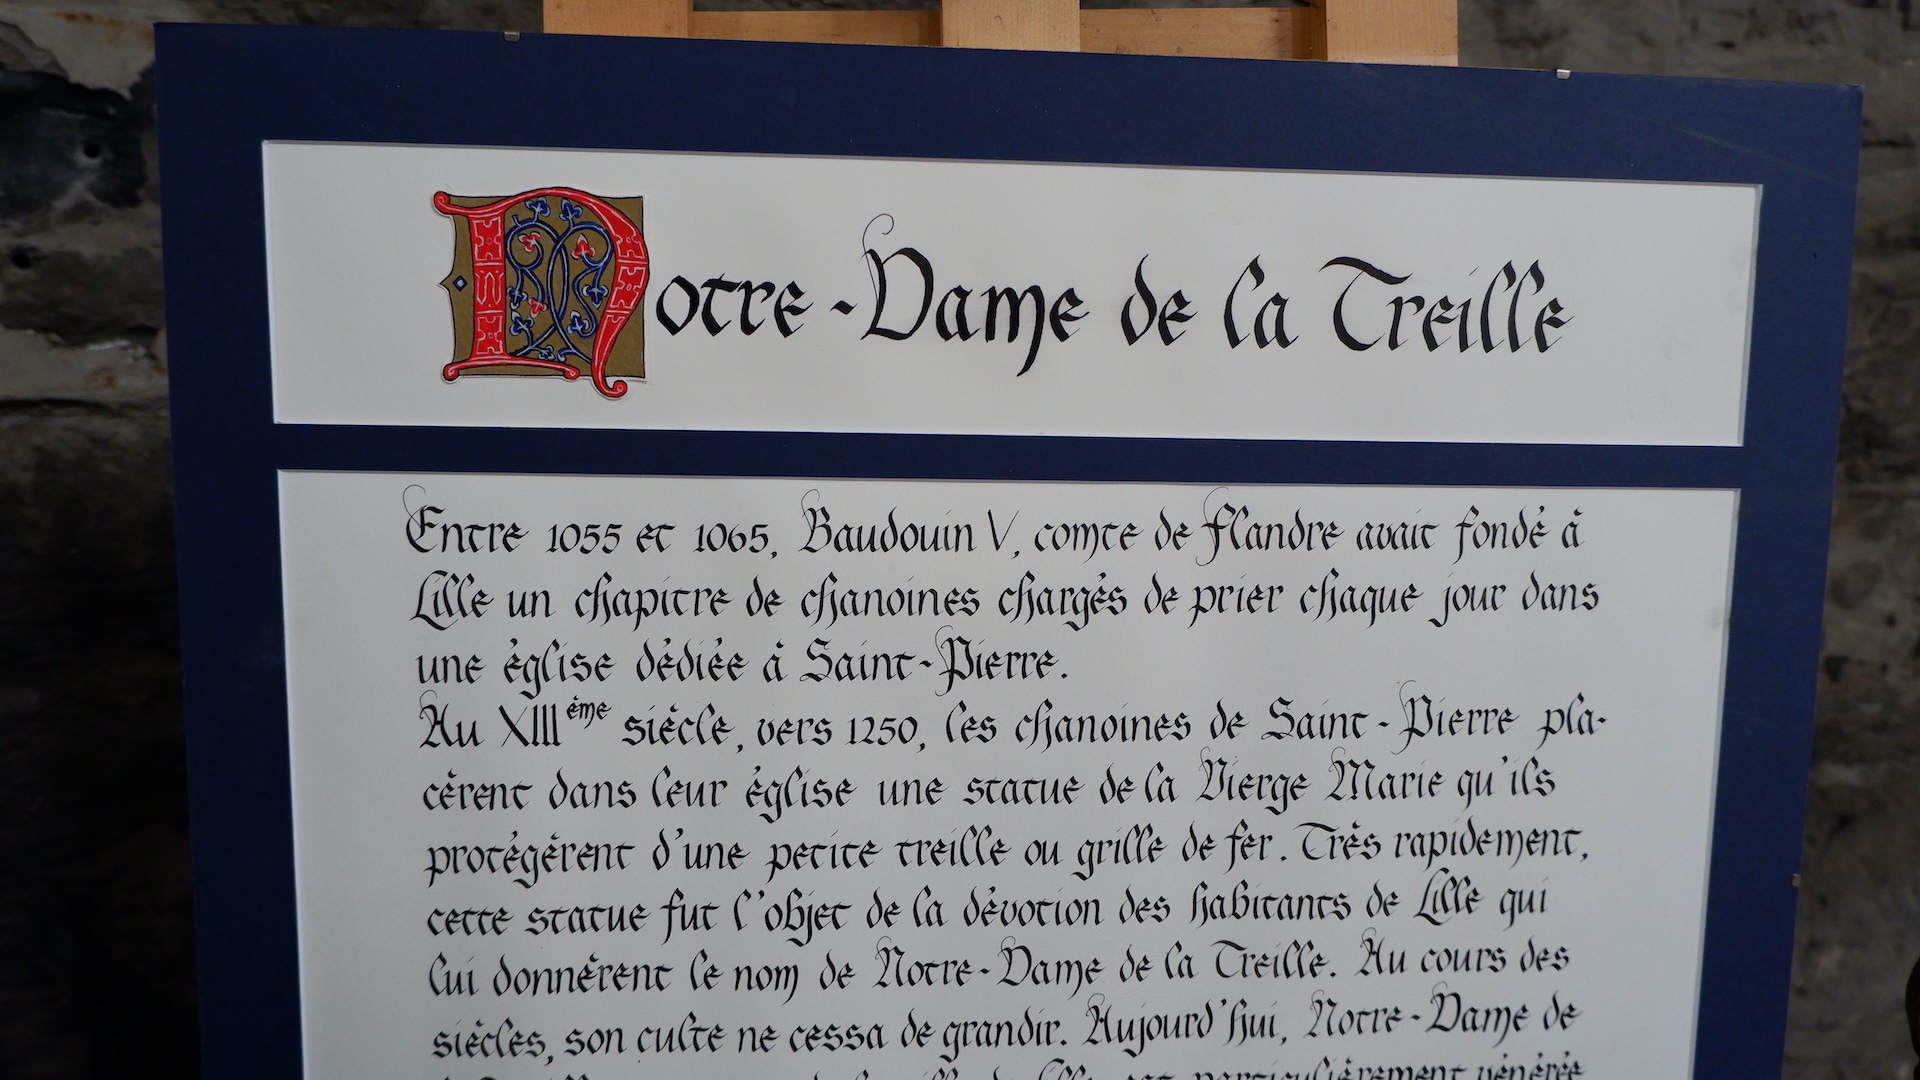 Notre-Dame de la Treille
Entre 1055 et 1065, Baudouin V, comte de Flandre avait fondé à
Lille un chapitre de chanoines chargés de prier chaque jour dans
une église dédiée à Saint-Pierre.
Au XIIIème siècle, vers 1250, les chanoines de Saint-Pierre pla-
cèrent dans leur église une statue de la Vierge Marie qu'ils
protégèrent d'une petite treille ou grille de fer. Très rapidement,
cette statue fut l'objet de la dévotion des habitants de Lille qui
lui donnèrent le nom de Notre-Dame de la Treille. Au cours des
siècles, son culte ne cessa de grandir. Aujourd'hui, Notre-Dame de
est particulièrement vénérée